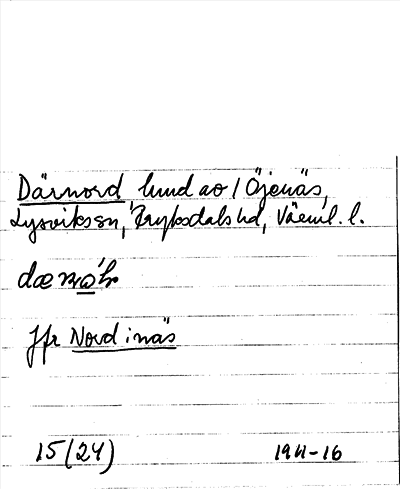 Därnord hmd av 1 Öjenäs,
Lysviks sn, Fryksdals hd, Värml. l.
Jfr Nord i näs
15 (24) 1911-16